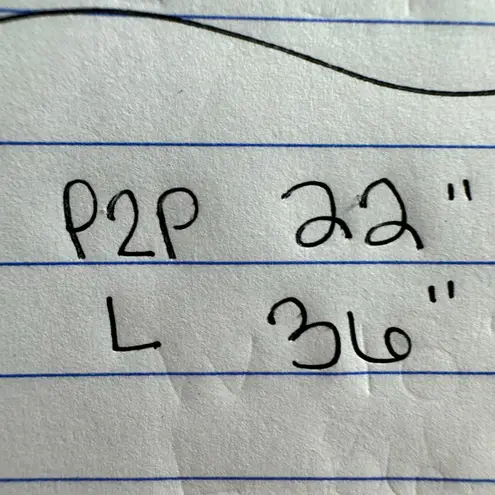 P2P 22"
L 36"